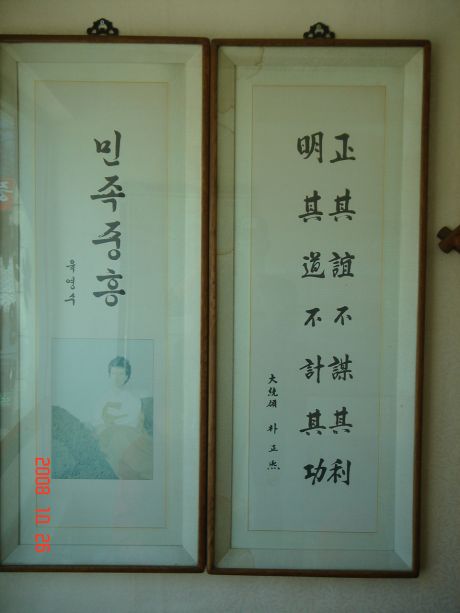 민족중흥
육영수
正其誼不謀其利
明其道不計其功
大統領 朴正熙
2008 10 26